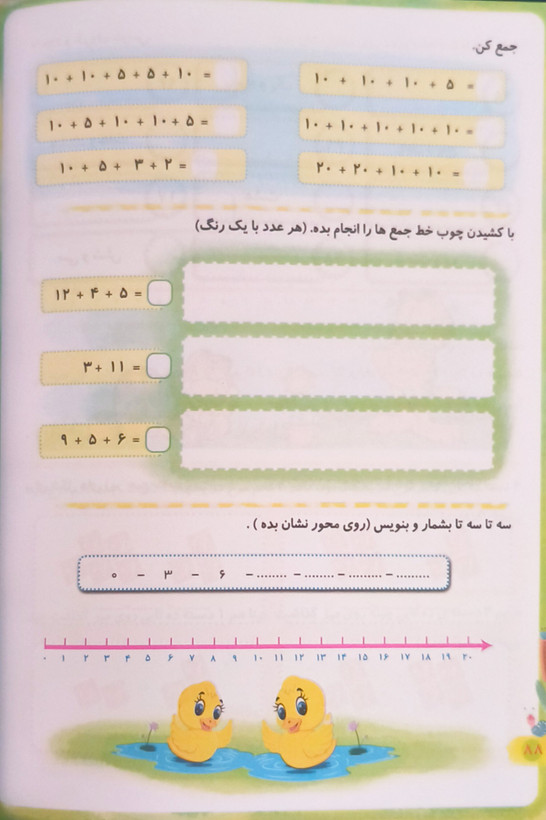 جمع کن.
۱۰ + ۱۰ + ۱۰ + ۵ =
۱۰ + ۱۰ + ۵ + ۵ + ۱۰ =
۱۰ + ۱۰ + ۱۰ + ۱۰ + ۱۰ =
۱۰ + ۵ + ۱۰ + ۱۰ + ۵ =
۲۰ + ۲۰ + ۱۰ + ۱۰ =
۱۰ + ۵ + ۳ + ۲ =
با کشیدن چوب خط جمع ها را انجام بده. (هر عدد با یک رنگ)
۱۲ + ۴ + ۵ =
۳ + ۱۱ =
۹ + ۵ + ۶ =
سه تا سه تا بشمار و بنویس (روی محور نشان بده ) .
۰ – ۳ – ۶ – ........ – ........ – ......... – .........
۰ ۱ ۲ ۳ ۴ ۵ ۶ ۷ ۸ ۹ ۱۰ ۱۱ ۱۲ ۱۳ ۱۴ ۱۵ ۱۶ ۱۷ ۱۸ ۱۹ ۲۰
۸۸